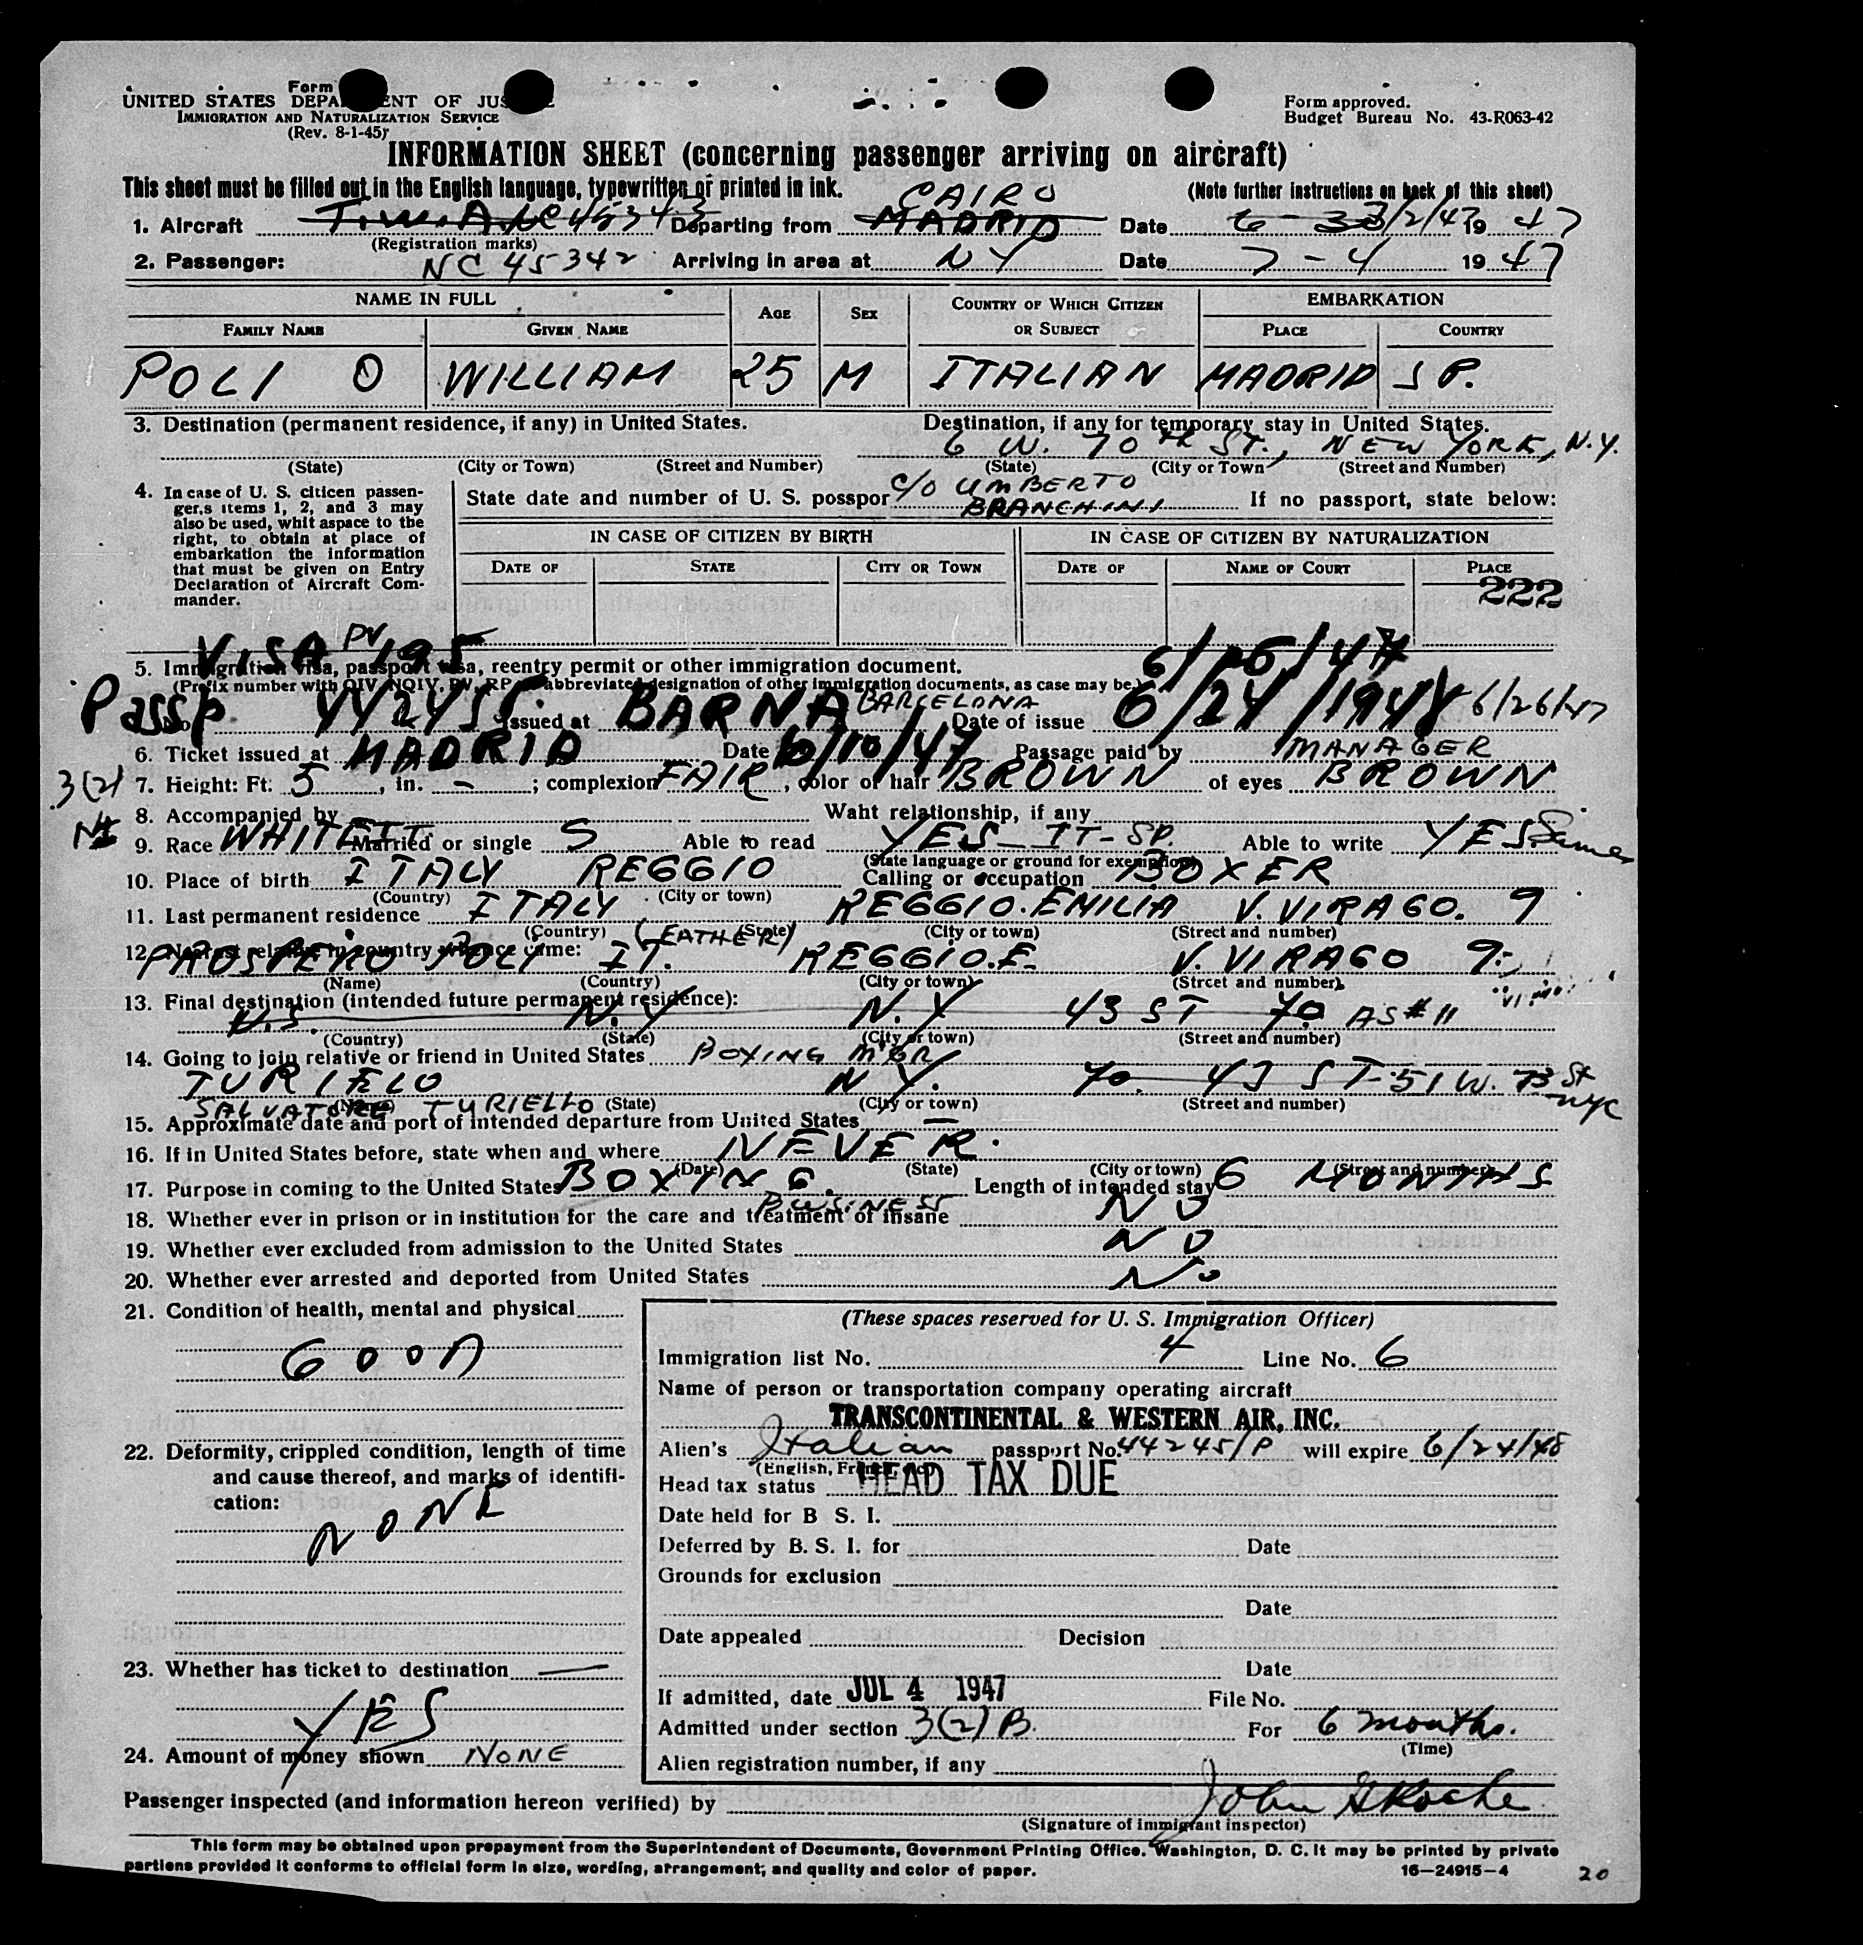 Form
UNITED STATES DEPA ENT OF JUS
IMMIGRATION AND NATURALIZATION SERVICE
(Rev. 8-1-45)
Form approved.
Budget Bureau No. 43-R063-42
INFORMATION SHEET (concerning passenger arriving on aircraft)
This sheet must be filled out in the English language, typewritten or printed in ink. (Note further instructions on back of this sheet)
CAIRO
1. Aircraft Departing from MADRID Date 7/2/47 19 47
(Registration marks)
2. Passenger: NC 45342 Arriving in area at NY Date 7-4 19 47
NAME IN FULL AGE SEX COUNTRY OF WHICH CITIZEN OR SUBJECT EMBARKATION
FAMILY NAME GIVEN NAME PLACE COUNTRY
POLI O WILLIAM 25 M ITALIAN MADRID SP.
3. Destination (permanent residence, if any) in United States. Destination, if any for temporary stay in United States.
6 W. 70TH ST., NEW YORK, N.Y.
(State) (City or Town) (Street and Number) (State) (City or Town (Street and Number)
4. In case of U. S. citicen passen-
ger,s items 1, 2, and 3 may
also be used, whit aspace to the
right, to obtain at place of
embarkation the information
that must be given on Entry
Declaration of Aircraft Com-
mander.
State date and number of U. S. posspor c/o UMBERTO BRANCHINI If no passport, state below:
IN CASE OF CITIZEN BY BIRTH IN CASE OF CITIZEN BY NATURALIZATION
DATE OF STATE CITY OR TOWN DATE OF NAME OF COURT PLACE
222
VISA PV 195
5. Immigration visa, passport visa, reentry permit or other immigration document.
(Prefix number with QIV, NQIV, PV, RP abbreviated designation of other immigration documents, as case may be.)
Passp No. Issued at BARNA BARCELONA Date of issue 6/24/194 6/26/47
6. Ticket issued at MADRID Date 6/10/47 Passage paid by MANAGER
3(2) 7. Height: Ft. 5, in. -; complexion FAIR, color of hair BROWN of eyes BROWN
8. Accompanied by Waht relationship, if any
9. Race WHITE IT. Married or single S Able to read YES IT-SP. Able to write YES Same
(State language or ground for exemption)
10. Place of birth ITALY REGGIO Calling or occupation BOXER
(Country) (City or town)
11. Last permanent residence ITALY REGGIO.EMILIA V.VIRAGO. 9
(Country) (State) (City or town) (Street and number)
12. Nearest relative in country whence came: (FATHER)
PROSPERO POLI IT. REGGIO.E. V.VIRAGO 9.
(Name) (Country) (City or town) (Street and number)
13. Final destination (intended future permanent residence):
U.S. N.Y N.Y 43 ST 70 AS # 11
(Country) (State) (City or town) (Street and number)
14. Going to join relative or friend in United States BOXING MGR
TURIELO N Y. 70. 43 ST- 51 W. 73 St NYC
SALVATORE TURIELLO
(Name) (State) (City or town) (Street and number)
15. Approximate date and port of intended departure from United States —
16. If in United States before, state when and where NEVER.
(Date) (State) (City or town) (Street and number)
17. Purpose in coming to the United States BOXING. Length of intended stay 6 MONTHS
BUSINESS
18. Whether ever in prison or in institution for the care and treatment of insane NO
19. Whether ever excluded from admission to the United States NO
20. Whether ever arrested and deported from United States No
21. Condition of health, mental and physical
GOOD
22. Deformity, crippled condition, length of time
and cause thereof, and marks of identifi-
cation:
NONE
23. Whether has ticket to destination —
YES
24. Amount of money shown NONE
(These spaces reserved for U. S. Immigration Officer)
Immigration list No. 4 Line No. 6
Name of person or transportation company operating aircraft
TRANSCONTINENTAL & WESTERN AIR, INC.
Alien's Italian passport No. 44245/P will expire 6/24/48
(English, French, etc.)
Head tax status HEAD TAX DUE
Date held for B S. I.
Deferred by B. S. I. for Date
Grounds for exclusion
Date
Date appealed Decision
Date
If admitted, date JUL 4 1947 File No.
Admitted under section 3(2)B. For 6 months.
(Time)
Alien registration number, if any
Passenger inspected (and information hereon verified) by John Roche
(Signature of immigrant inspector)
This form may be obtained upon prepayment from the Superintendent of Documents, Government Printing Office. Washington, D. C. It may be printed by private
partiens provided it conforms to official form in size, wording, arrangement; and quality and color of paper. 16-24915-4
20